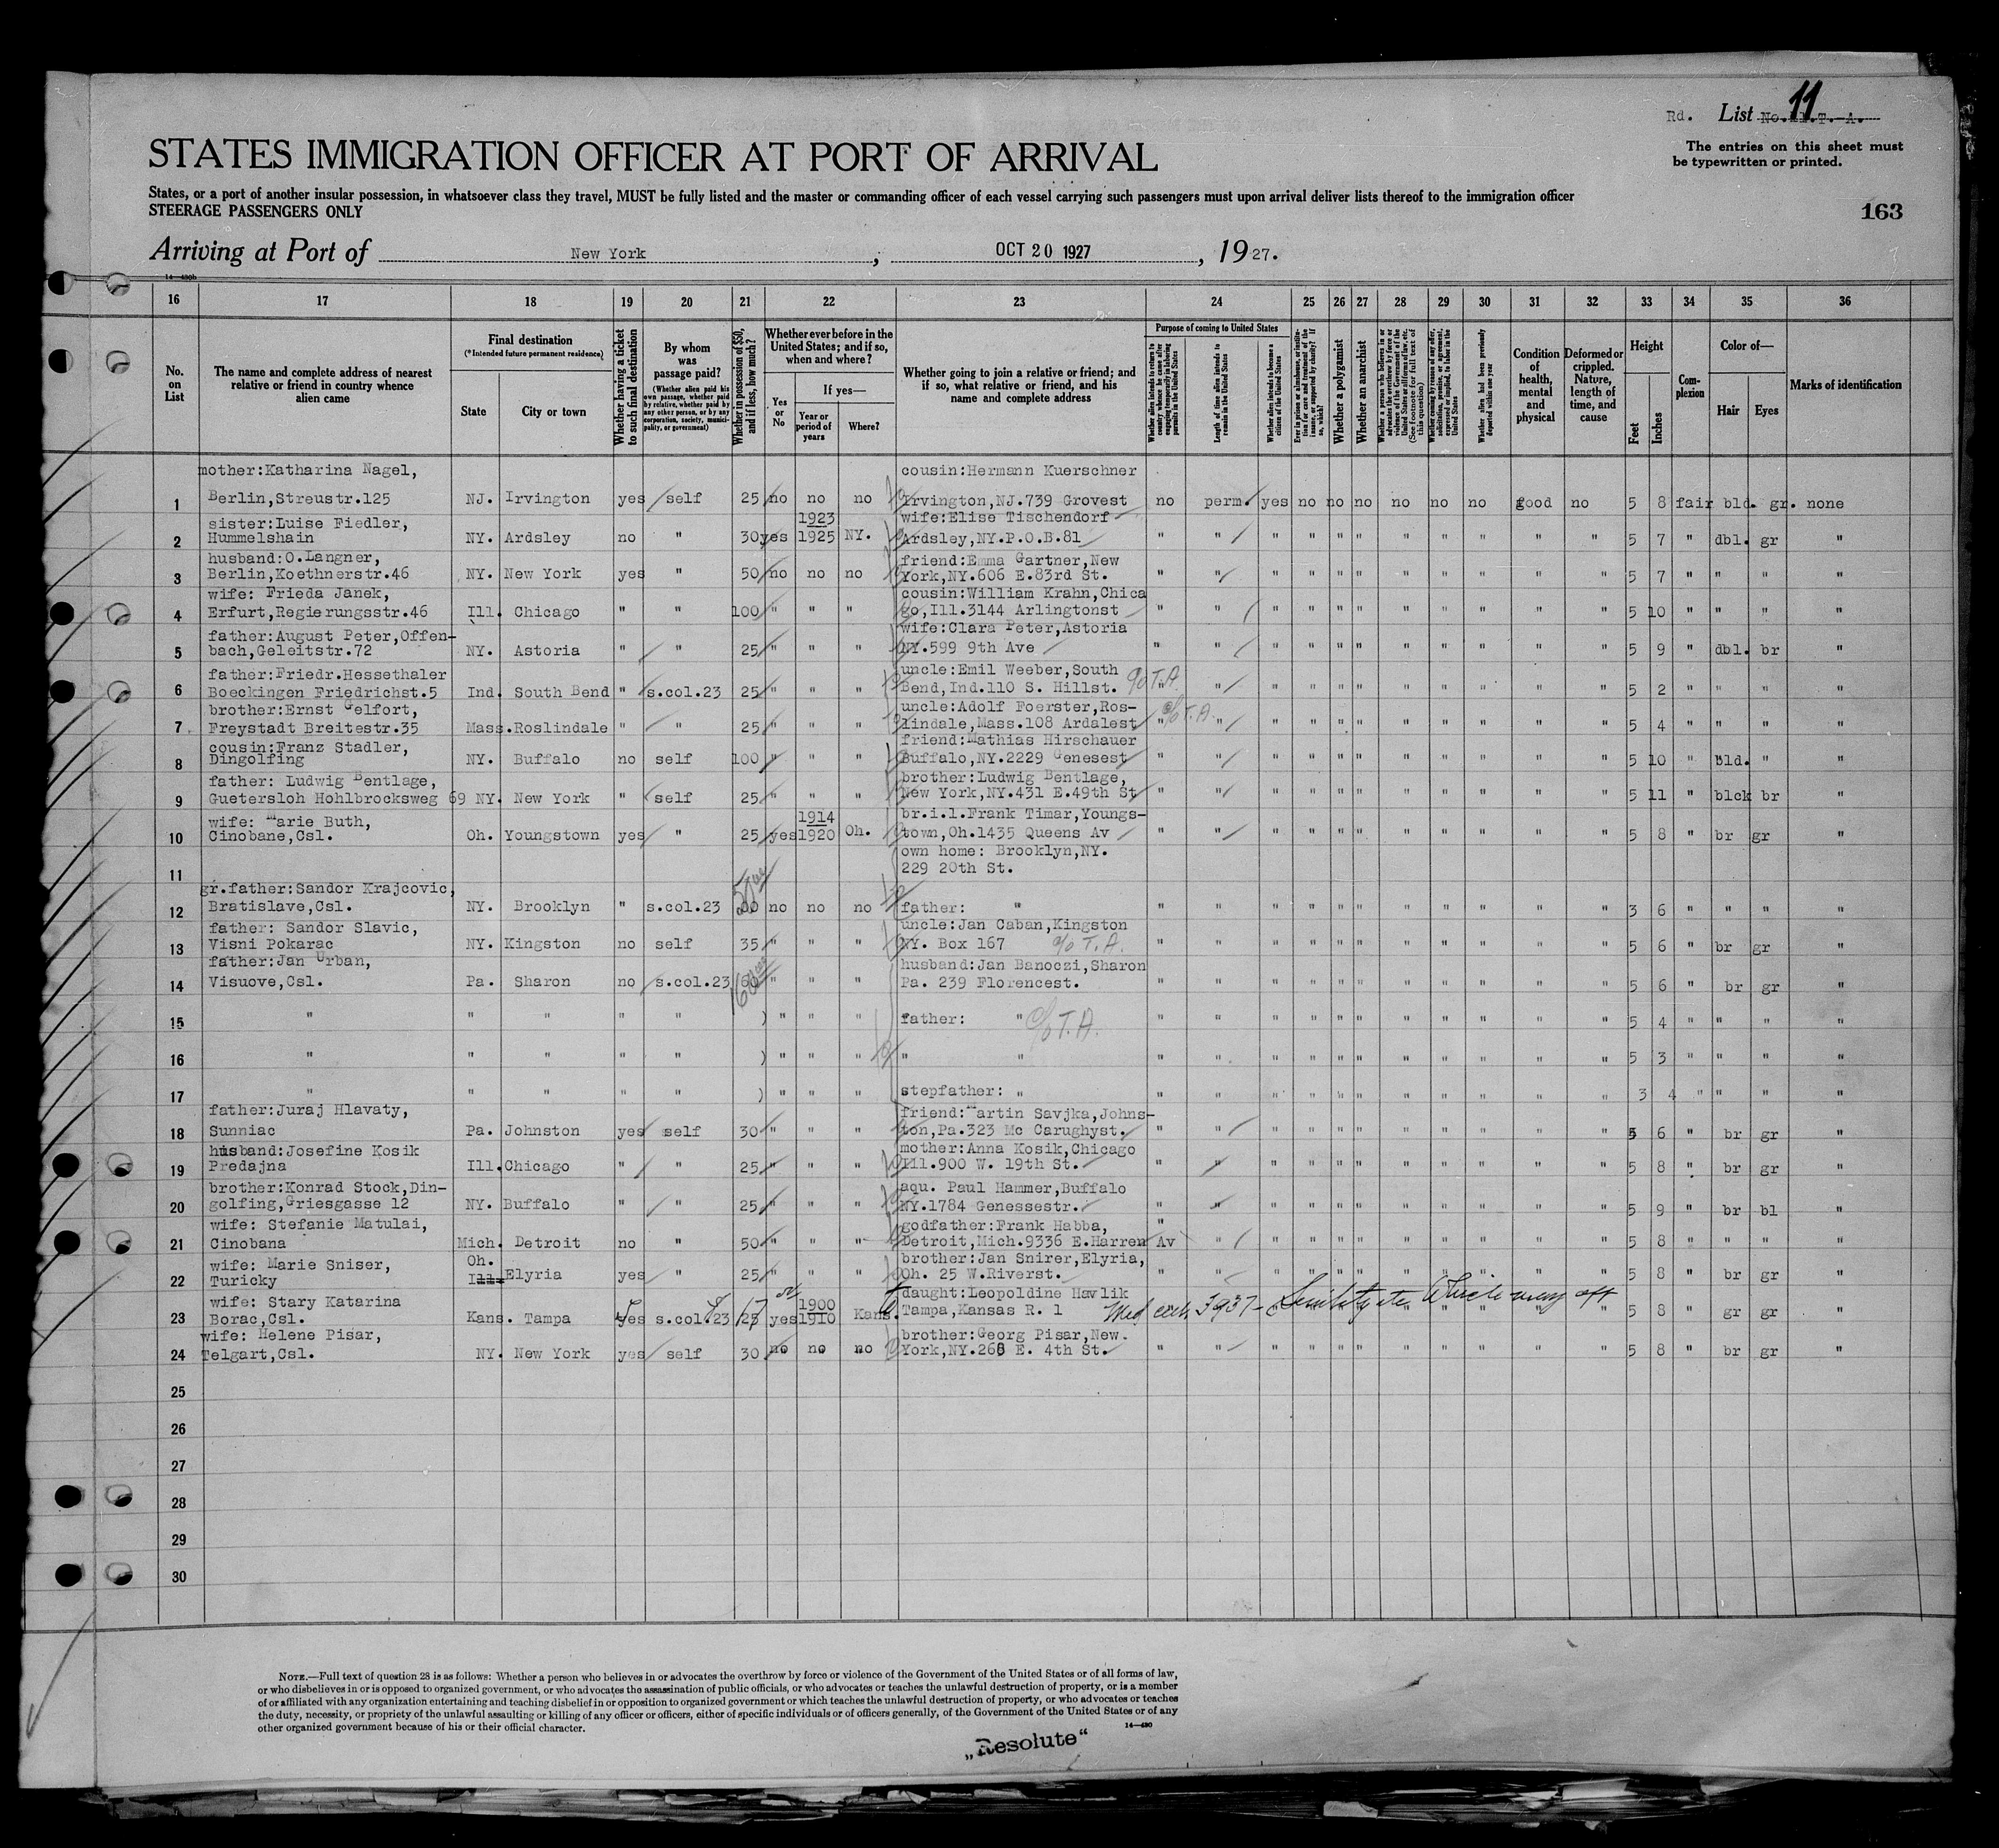 Rd. List No. 11
The entries on this sheet must
be typewritten or printed.
STATES IMMIGRATION OFFICER AT PORT OF ARRIVAL
States, or a port of another insular possession, in whatsoever class they travel, MUST be fully listed and the master or commanding officer of each vessel carrying such passengers must upon arrival deliver lists thereof to the immigration officer
STEERAGE PASSENGERS ONLY
163
Arriving at Port of New York, OCT 20 1927, 1927.
14—430b
16 17 18 19 20 21 22 23 24 25 26 27 28 29 30 31 32 33 34 35 36
No. on List
The name and complete address of nearest relative or friend in country whence alien came
Final destination
(*Intended future permanent residence)
State
City or town
Whether having a ticket to such final destination
By whom was passage paid?
(Whether alien paid his own passage, whether paid by relative, whether paid by any other person, or by any corporation, society, municipality, or government)
Whether in possession of $50, and if less, how much?
Whether ever before in the United States; and if so, when and where?
Yes or No
If yes—
Year or period of years
Where?
Whether going to join a relative or friend; and if so, what relative or friend, and his name and complete address
Purpose of coming to United States
Length of time alien intends to remain in the United States
Whether alien intends to become a citizen of the United States
Whether a polygamist
Whether an anarchist
Whether alien had been previously deported within one year
Condition of health, mental and physical
Deformed or crippled. Nature, length of time, and cause
Height
Feet
Inches
Complexion
Color of—
Hair
Eyes
Marks of identification
mother:Katharina Nagel, cousin:Hermann Kuerschner
1 Berlin,Streustr.125 NJ. Irvington yes self 25 no no no Irvington,NJ.739 Grovest no perm. yes no no no no no no good no 5 8 fair bld. gr. none
sister:Luise Fiedler, 1923 wife:Elise Tischendorf
2 Hummelshain NY. Ardsley no " 30 yes 1925 NY. Ardsley,NY.P.O.B.81 " " " " " " " " " " " 5 7 " dbl. gr "
husband:O.Langner, friend:Emma Gartner,New
3 Berlin,Koethnerstr.46 NY. New York yes " 50 no no no York,NY.606 E.83rd St. " " " " " " " " " " " 5 7 " " " "
wife: Frieda Janek, cousin:William Krahn,Chica
4 Erfurt,Regierungsstr.46 Ill. Chicago " " 100 " " " go,Ill.3144 Arlingtonst " " " " " " " " " " 5 10 " " " "
father:August Peter,Offen- wife:Clara Peter,Astoria
5 bach,Geleitstr.72 NY. Astoria " " 25 " " " NY.599 9th Ave " " " " " " " " " " 5 9 " dbl. br "
father:Friedr.Hessethaler uncle:Emil Weeber,South
6 Boeckingen Friedrichst.5 Ind. South Bend " s.col.23 25 " " " Bend,Ind.110 S. Hillst. c/o T.A. " " " " " " " " " " " 5 2 " " " "
brother:Ernst Gelfort, uncle:Adolf Foerster,Ros-
7 Freystadt Breitestr.35 Mass. Roslindale " " 25 " " " lindale,Mass.108 Ardalest c/o T.A. " " " " " " " " " " " 5 4 " " " "
cousin:Franz Stadler, friend:Mathias Hirschauer
8 Dingolfing NY. Buffalo no self 100 " " " Buffalo,NY.2229 Genesest " " " " " " " " " " " 5 10 " bld. " "
father: Ludwig Bentlage, brother:Ludwig Bentlage,
9 Guetersloh Hohlbrocksweg 69 NY. New York " self 25 " " " New York,NY.431 E.49th St " " " " " " " " " " " 5 11 " blck br "
wife: Marie Buth, 1914 br.i.l.Frank Timar,Youngs-
10 Cinobane,Csl. Oh. Youngstown yes " 25 yes 1920 Oh. town,Oh.1435 Queens Av " " " " " " " " " " " 5 8 " br gr "
own home: Brooklyn,NY.
11 229 20th St.
gr.father:Sandor Krajcovic,
12 Bratislave,Csl. NY. Brooklyn " s.col.23 no no no father: " " " " " " " " " " " " 3 6 " " " "
father: Sandor Slavic, uncle:Jan Caban,Kingston
13 Visni Pokarac NY. Kingston no self 35 " " " NY. Box 167 c/o T.A. " " " " " " " " " " " 5 6 " br gr "
father:Jan Urban, husband:Jan Banoczi,Sharon
14 Visuove,Csl. Pa. Sharon no s.col.23 60 " " " Pa. 239 Florencest. " " " " " " " " " " " 5 6 " br gr "
15 " " " " " ) " " " father: " c/o T.A. " " " " " " " " " " " 5 4 " " " "
16 " " " " " ) " " " " " " " " " " " " " " " " " 5 3 " " " "
17 " " " " " ) " " " stepfather: " " " " " " " " " " " " 3 4 " " " "
father:Juraj Hlavaty, friend:Martin Savjka,Johns-
18 Sunniac Pa. Johnston yes self 30 " " " ton,Pa.323 Mc Carughyst. " " " " " " " " " " 5 6 " br gr "
husband:Josefine Kosik mother:Anna Kosik,Chicago
19 Predajna Ill. Chicago " " 25 " " " Ill.900 W. 19th St. " " " " " " " " " " 5 8 " br gr "
brother:Konrad Stock,Din- aqu. Paul Hammer,Buffalo
20 golfing,Griesgasse 12 NY. Buffalo " " 25 " " " NY.1784 Genessestr. " " " " " " " " " " " 5 9 " br bl "
wife: Stefanie Matulai, godfather:Frank Habba, "
21 Cinobana Mich. Detroit no " 50 " " " Detroit,Mich.9336 E.Harren Av " " " " " " " " " " 5 8 " " " "
wife: Marie Sniser, Oh. brother:Jan Snirer,Elyria,
22 Turicky Ill. Elyria yes " 25 " " " Oh. 25 W.Riverst. " " " " " " " " " " " 5 8 " br gr "
wife: Stary Katarina 1900 daught:Leopoldine Hawlik
23 Borac,Csl. Kans. Tampa yes s.col.23 25 yes 1910 Kans. Tampa,Kansas R. 1 Med cert. 5 8 " gr gr "
wife: Helene Pisar, brother:Georg Pisar,New
24 Telgart,Csl. NY. New York yes self 30 no no no York,NY.268 E. 4th St. " " " " " " " " " " " 5 8 " br gr "
25
26
27
28
29
30
NOTE.—Full text of question 28 is as follows: Whether a person who believes in or advocates the overthrow by force or violence of the Government of the United States or of all forms of law,
or who disbelieves in or is opposed to organized government, or who advocates the assassination of public officials, or who advocates or teaches the unlawful destruction of property, or is a member
of or affiliated with any organization entertaining and teaching disbelief in or opposition to organized government or which teaches the unlawful destruction of property, or who advocates or teaches
the duty, necessity, or propriety of the unlawful assaulting or killing of any officer or officers, either of specific individuals or of officers generally, of the Government of the United States or of any
other organized government because of his or their official character.
14—430
„Resolute“